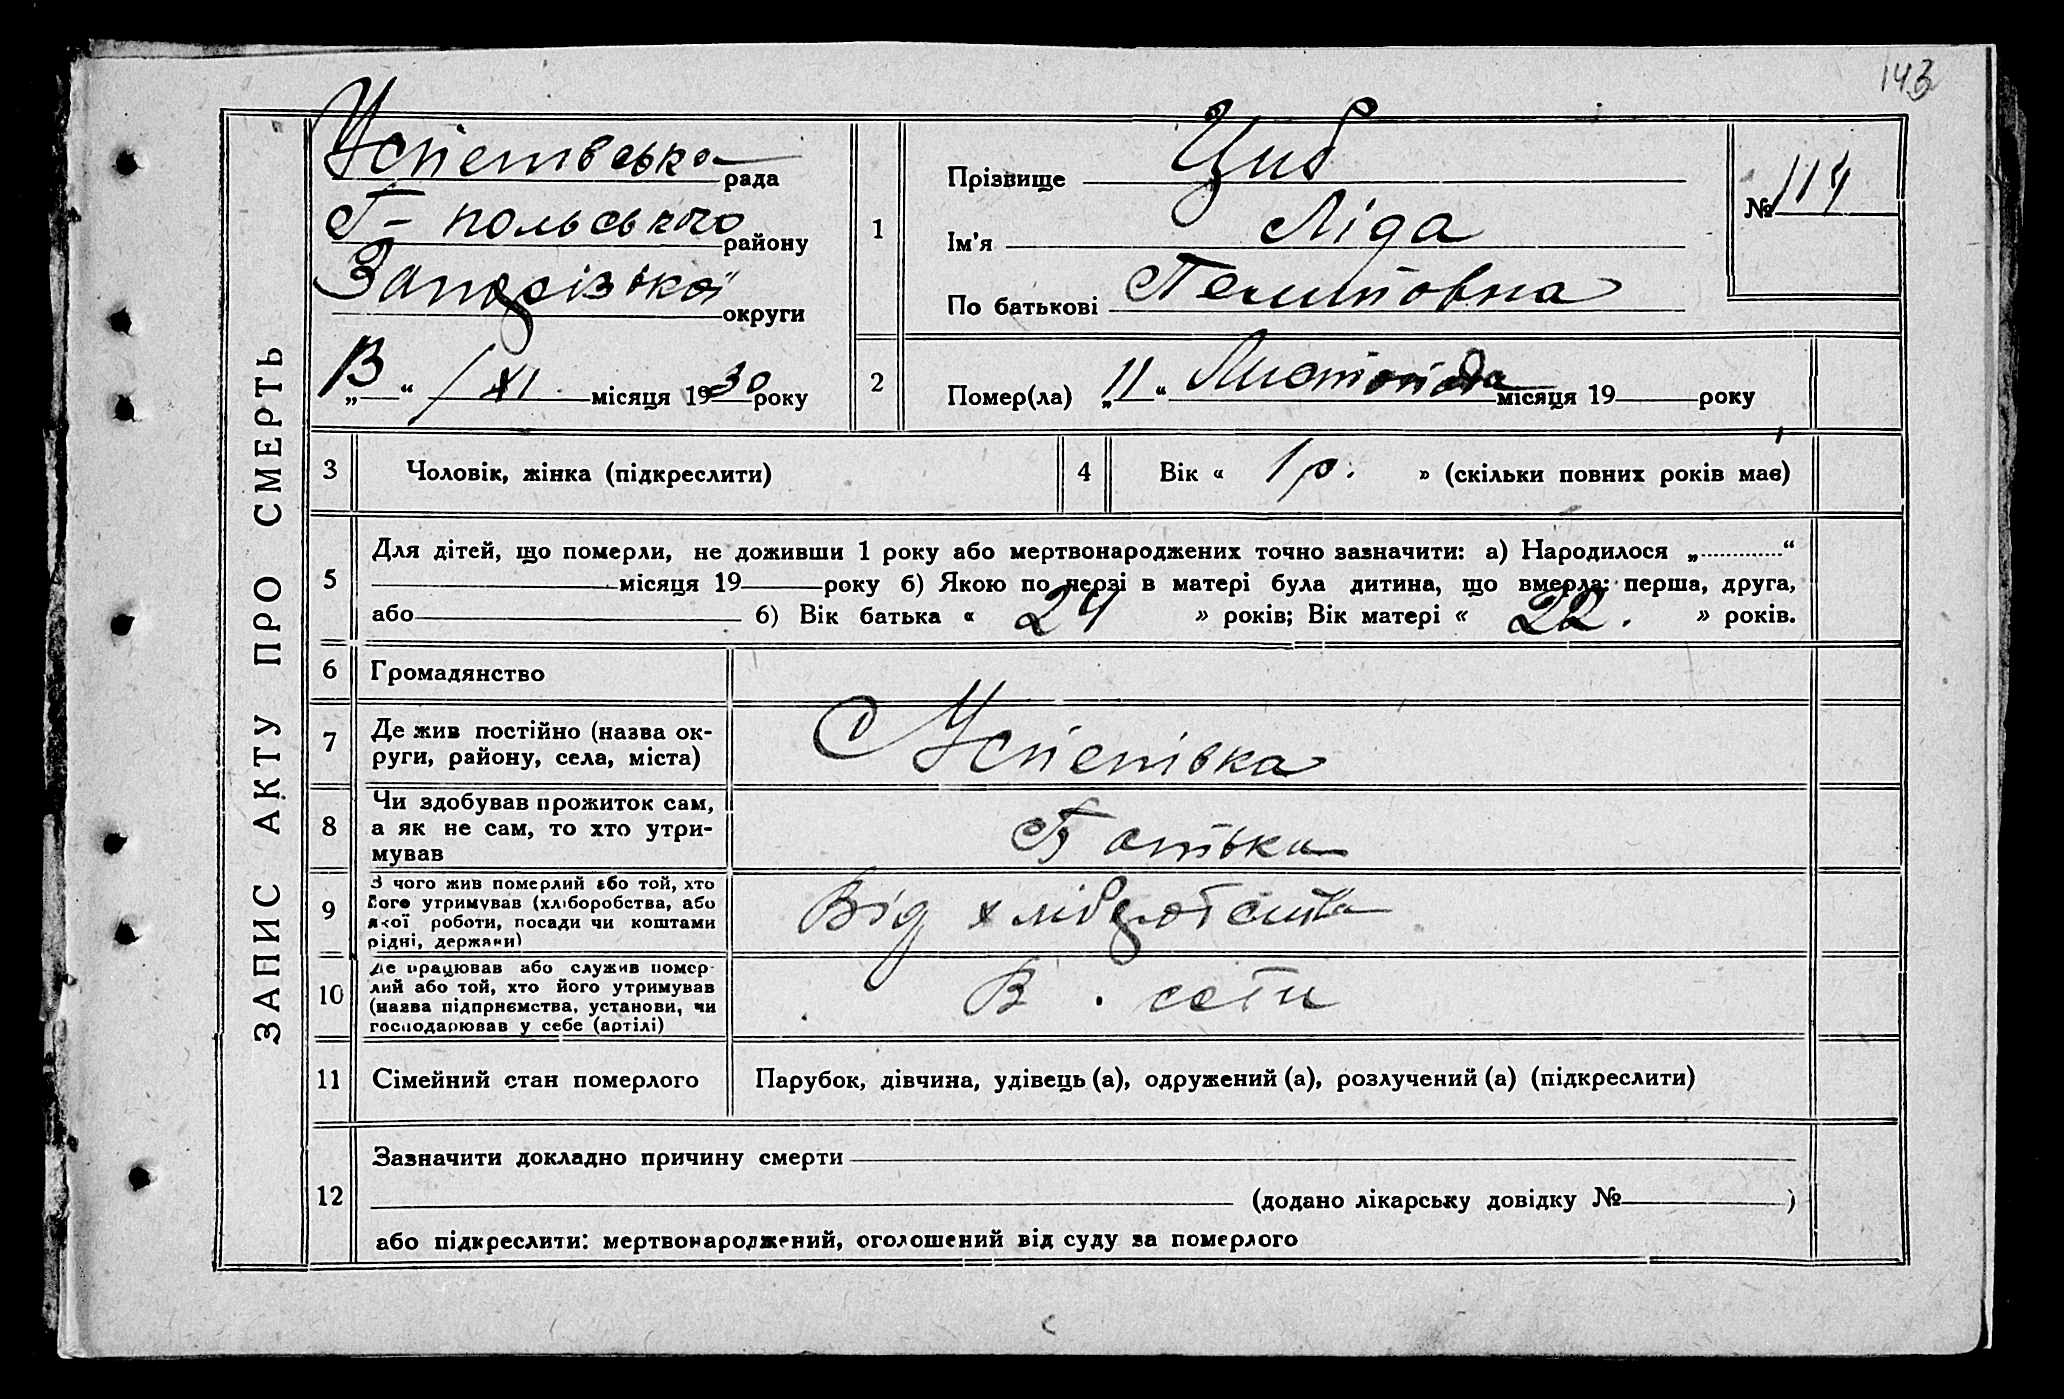 143
ЗАПИС АКТУ ПРО СМЕРТЬ
Успенівська рада
Г-польського району
Запорізької округи
„13“ / XI місяця 1930 року
1
Прізвище Циб
Ім'я Ліда
По батькові
№ 114
2
Помер(ла) „11“ Листопада місяця 19 року
3
Чоловік, жінка (підкреслити)
4
Вік « 1 р. » (скільки повних років має)
5
Для дітей, що померли, не доживши 1 року або мертвонароджених точно зазначити: а) Народилося „ “
місяця 19 року б) Якою по черзі в матері була дитина, що вмерла: перша, друга,
або б) Вік батька « 24 » років; Вік матері « 22. » років.
6
Громадянство
7
Де жив постійно (назва ок-
руги, району, села, міста)
С Успенівка
8
Чи здобував прожиток сам,
а як не сам, то хто утри-
мував
Батька
9
З чого жив померлий або той, хто
його утримував (хліборобства, або
якої роботи, посади чи коштами
рідні, держави)
Від хліборобства
10
Де працював або служив помер-
лий або той, хто його утримував
(назва підприємства, установи, чи
господарював у себе (артілі)
В . себи
11
Сімейний стан померлого
Парубок, дівчина, удівець (а), одружений (а), розлучений (а) (підкреслити)
12
Зазначити докладно причину смерти
(додано лікарську довідку № )
або підкреслити: мертвонароджений, оголошений від суду за померлого